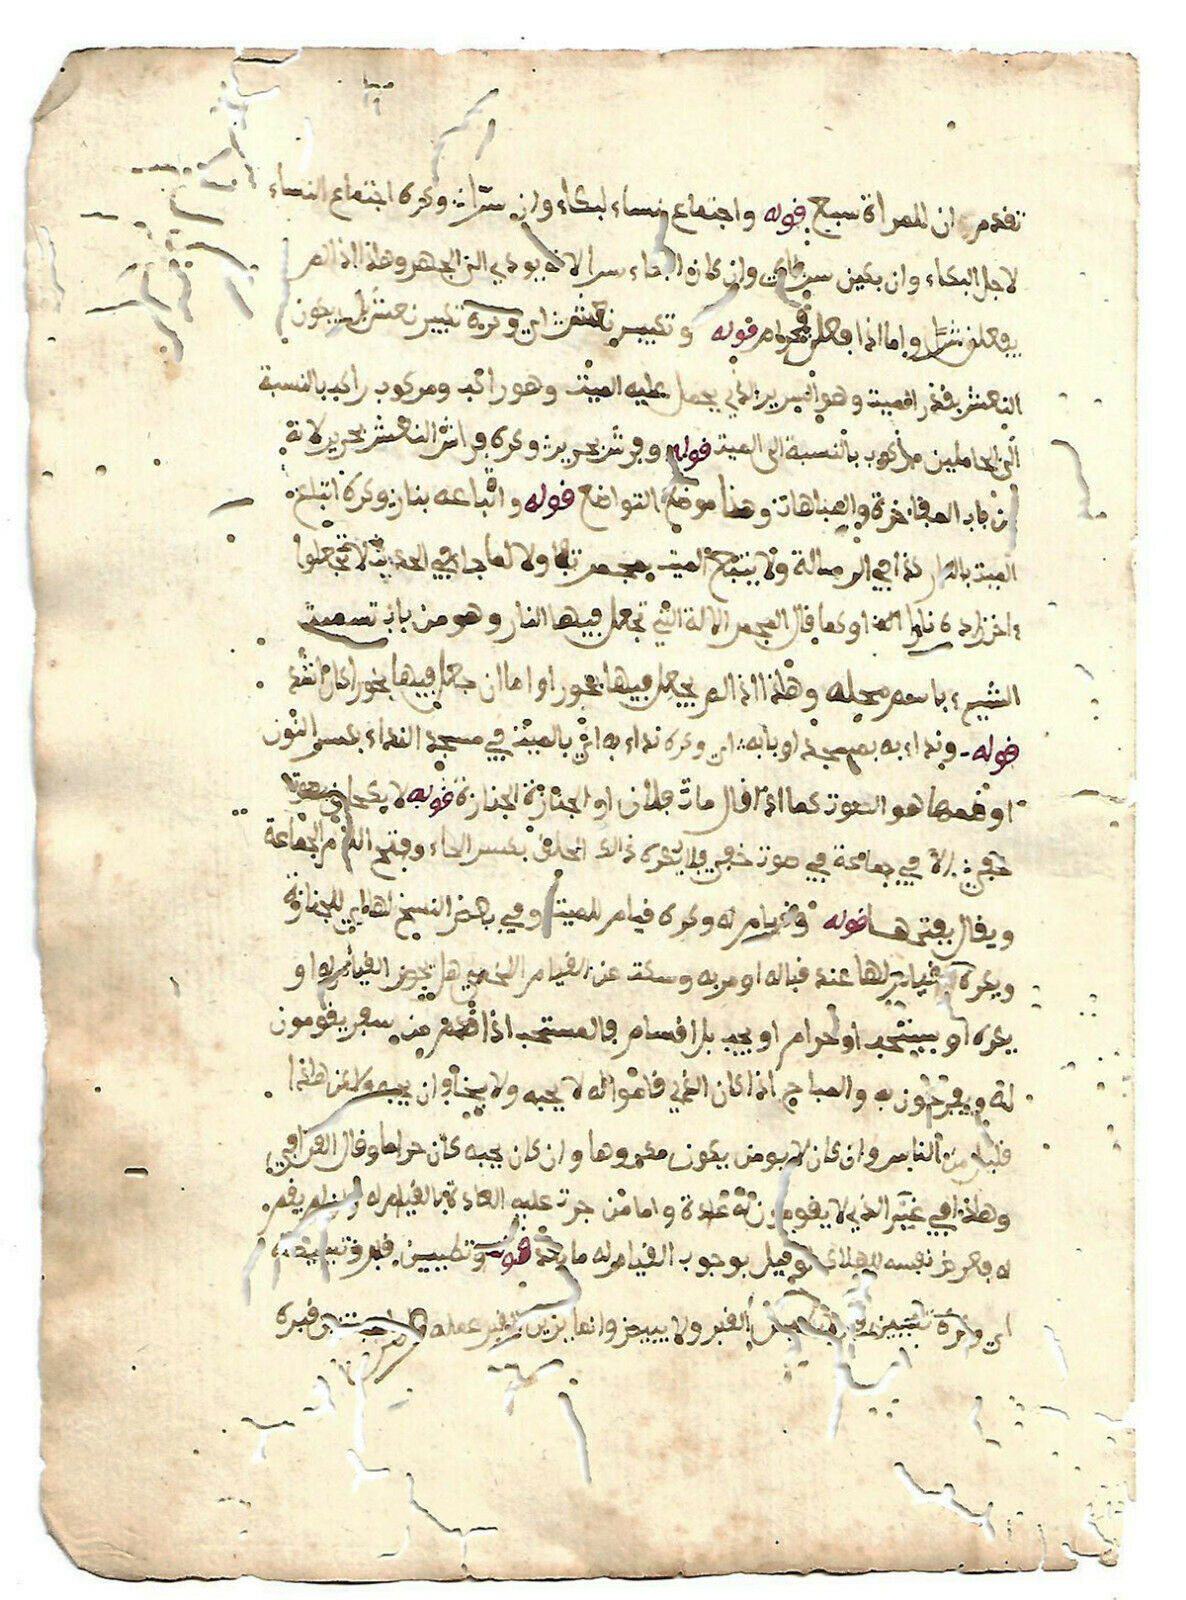 تقدم ان للمرأة سبع قوله واجتماع نساء لبكاء وان سرا: وكره اجتماع النساء
لاجل البكاء وان بكين سرا اي وان كان البكاء سرا لانه يودي الى الجهر وهذا اذا لم
يفعلن شيأ واما اذا فعلن فحرام قوله وتكبير نعش: اي وكره تكبير نعش بل يكون
النعش بقدر الميت وهو السرير الذي يحمل عليه الميت وهو راكب ومركوب راكب بالنسبة
الى الحاملين مركوب بالنسبة الى الميت قوله وفرش بحرير: وكره فراش النعش بحرير لانه
من باب المفاخرة والمباهات وهذا موضع التواضع قوله واتباعه بنار: وكره اتباع
الميت بالنار كذا في الرسالة ولا يتبع الميت بمجمر تفاولا لما جاء في الحديث لا تجعلوا
ءاخر زاده نارا او كما قال المجمر الالة التي تجعل فيها النار وهو من باب تسمية
الشيء باسم محله وهذا اذا لم يجعل فيها بخور او اما ان جعل فيها بخور كان اشد
قوله ونداء به بمسجد او بابه: اي وكره نداء به اي بالميت في مسجد النداء بكسر النون
او ضمها هو الصوت كما اذا قال مات فلان او الجنازة الجنازة قوله لا بكحلق بصوت
خفي: الا في جماعة في صوت خفي فلا يكره ذالك الحلق بكسر الحاء وفتح اللام الجماعة
ويقال بفتحها قوله وقيام له وكره قيام للميت وفي بعض النسخ لها اي للجنازة
ويكره قيام لها عند قباله او مر به وسكت عن القيام للحي هل يجوز القيام له او
يكره او يستحب او حرام او يجب بل اقسام فالمستحب اذا قدم من سفر يقومون
له ويفرحون به والمباح اذا كان الذي قاموا له لا يحبه ولا يخاف ان يحبه ولاكن هاذا
قليل من الناس وان كان لا يومن يكون مكروها وان كان يحبه كان حراما وقال القرافي
وهذا في غير الذي لا يقومون له عادة واما من جرت عليه العادة بالقيام له وان لم يقم
له فعرض نفسه للهلاك لو قيل بوجوب القيام له ما بعد قوله وتطيين قبر وتبييضه
اي وكره تطيين القبر ولا يبيض وانما يزين القبر عمله قبره